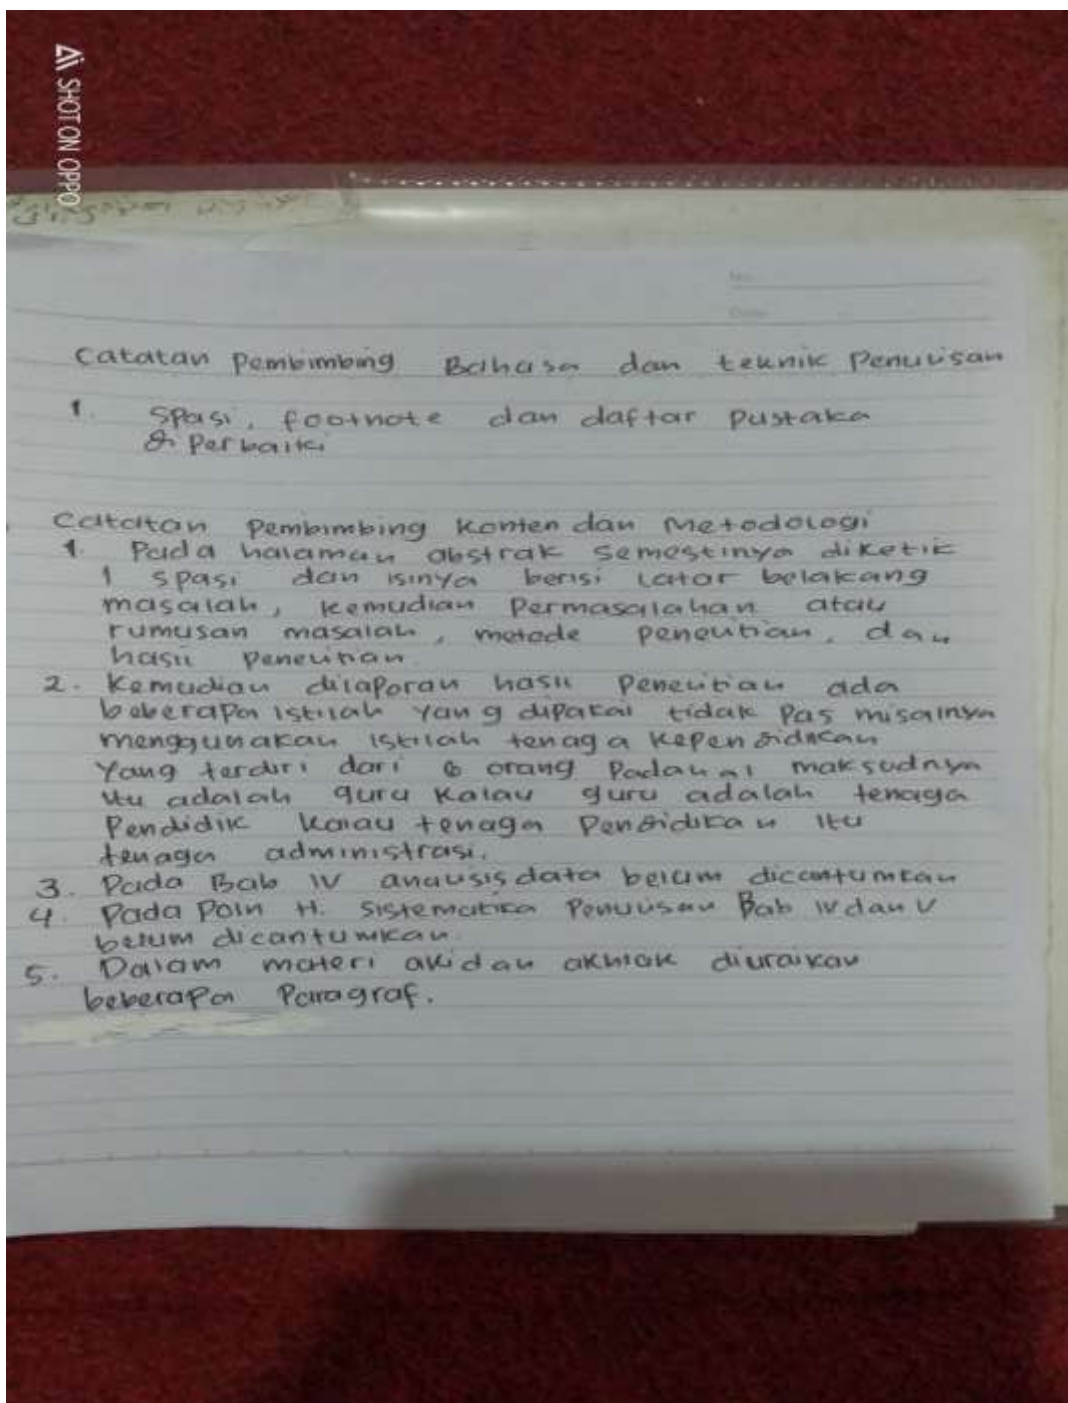 SHOT ON OPPO
Catatan Pembimbing Bahasa dan teknik Penulisan
1. Spasi, footnote dan daftar Pustaka
di Perbaiki
Catatan Pembimbing Konten dan Metodologi
1. Pada halaman abstrak semestinya diketik
1 spasi dan isinya berisi Latar belakang
masalah, kemudian Permasalahan atau
rumusan masalah, metode penelitian, dan
hasil penelitian
2. Kemudian dilaporan hasil Penelitian ada
beberapa istilah yang dipakai tidak Pas misalnya
menggunakan istilah tenaga Kependidikan
Yang terdiri dari 6 orang Padahal maksudnya
itu adalah guru Kalau guru adalah tenaga
Pendidik Kalau tenaga Pendidikan itu
tenaga administrasi.
3. Pada Bab IV analisis data belum dicantumkan
4. Pada Poin H. Sistematika Penulisan Bab IV dan V
belum dicantumkan.
5. Dalam materi akidah akhlak diuraikan
beberapa Paragraf.